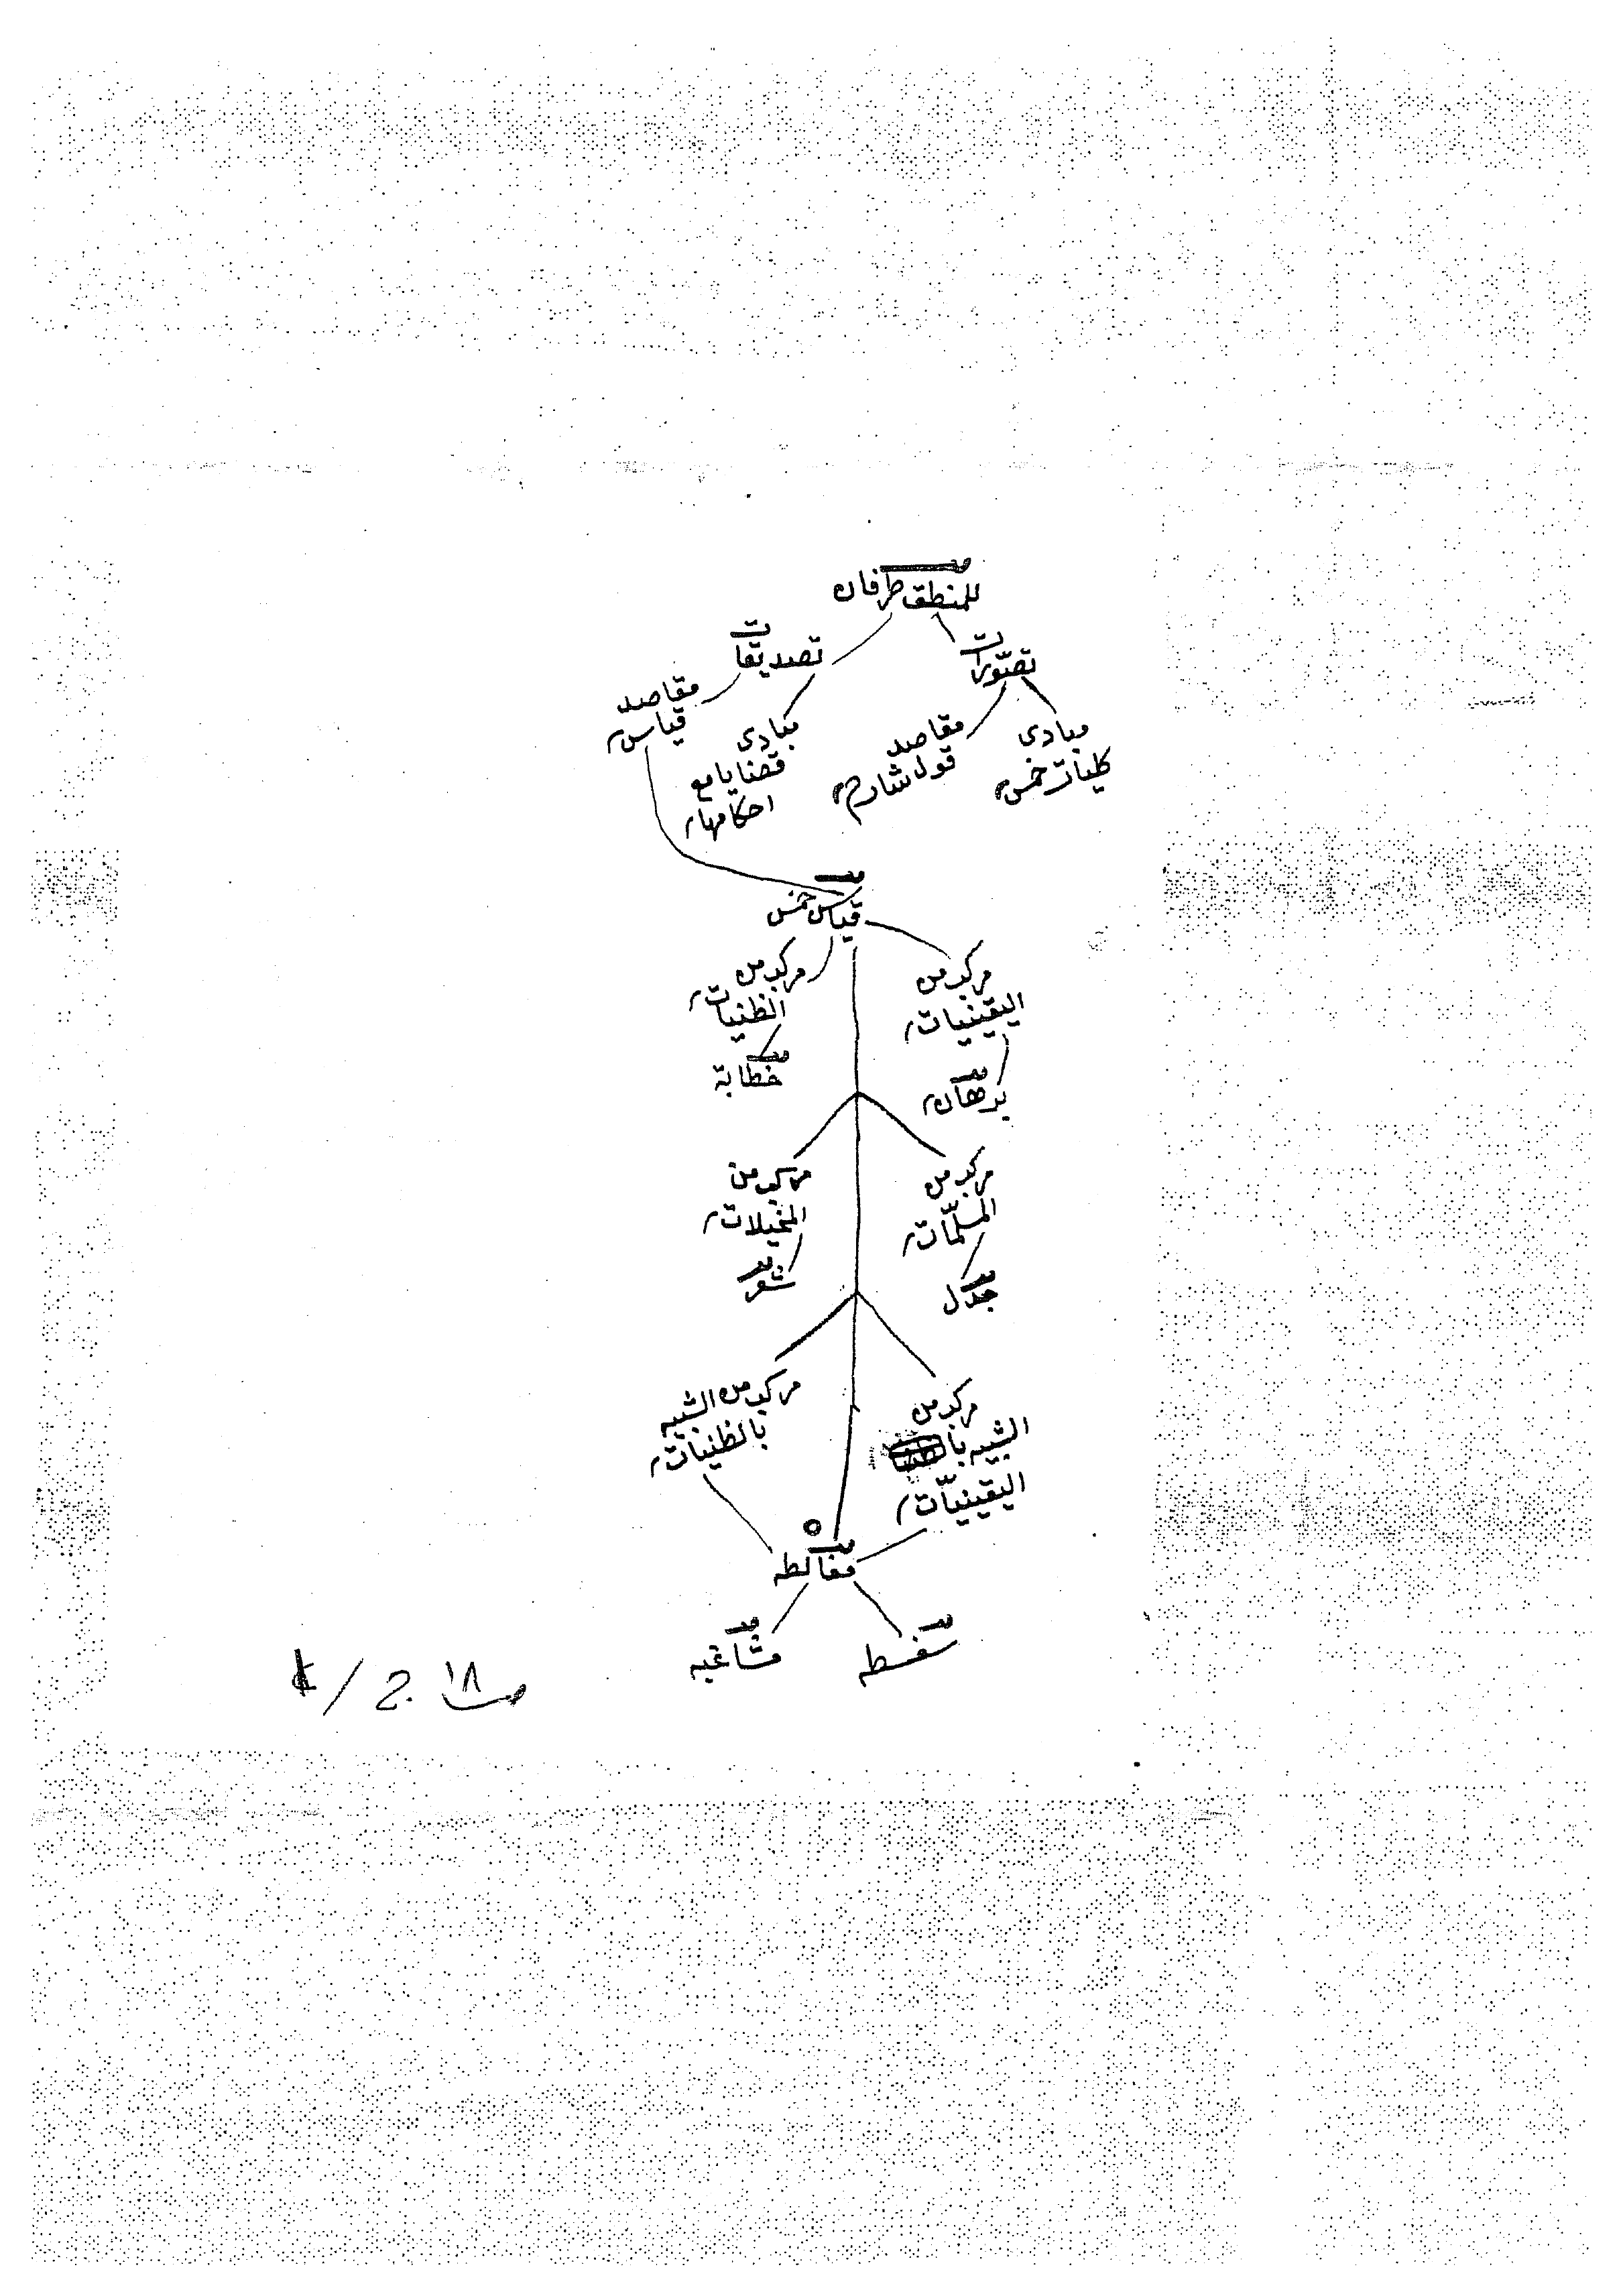 للمنطق طرفان
تصورات
تصديقات
مبادى
كليات خمس
مقاصد
قول شارح
مبادى
قضايا مع
احكامها
مقاصد
قياس
قياس خمس
مركب من
اليقينيات
برهان
مركب من
الظنيات
خطابة
مركب من
المسلّمات
جدل
مركب من
المخيلات
شعر
مركب من
الشبيه با
اليقينيّات
مركب من الشبيه
بالظنيات
مغالطه
سفسطه
مشاغبه
١٨